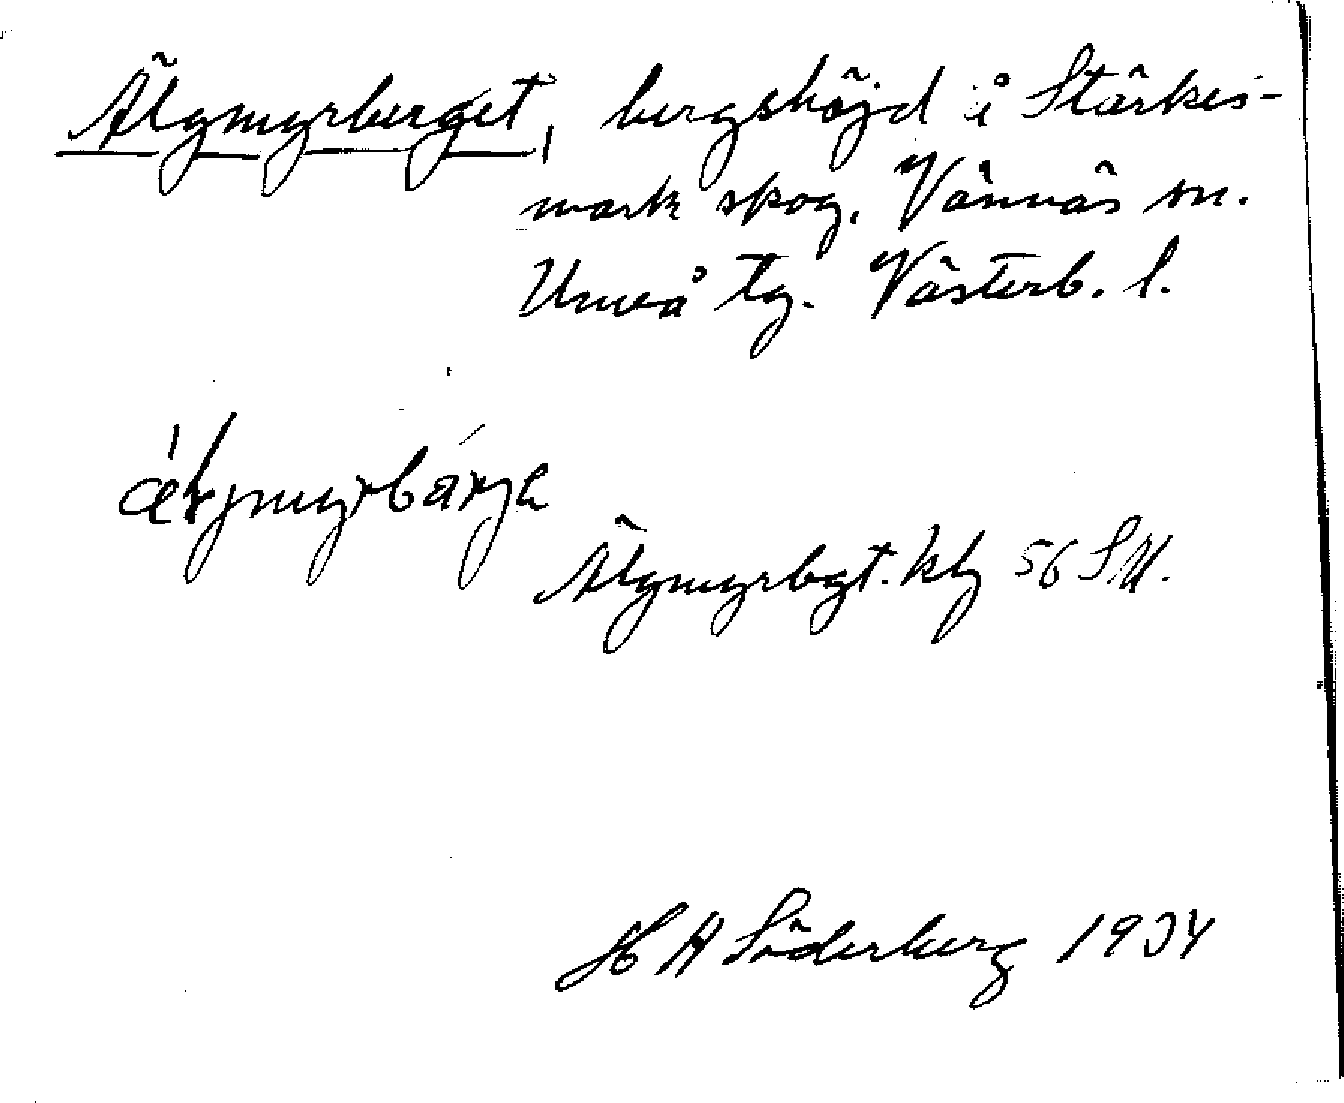 Älgmyrberget, bergshöjd å Stärkes-
mark skog. Vännäs sn.
Umeå tg. Västerb. l.
Älgmyrbgt. kbl 56 SV.
H A Söderberg 1934